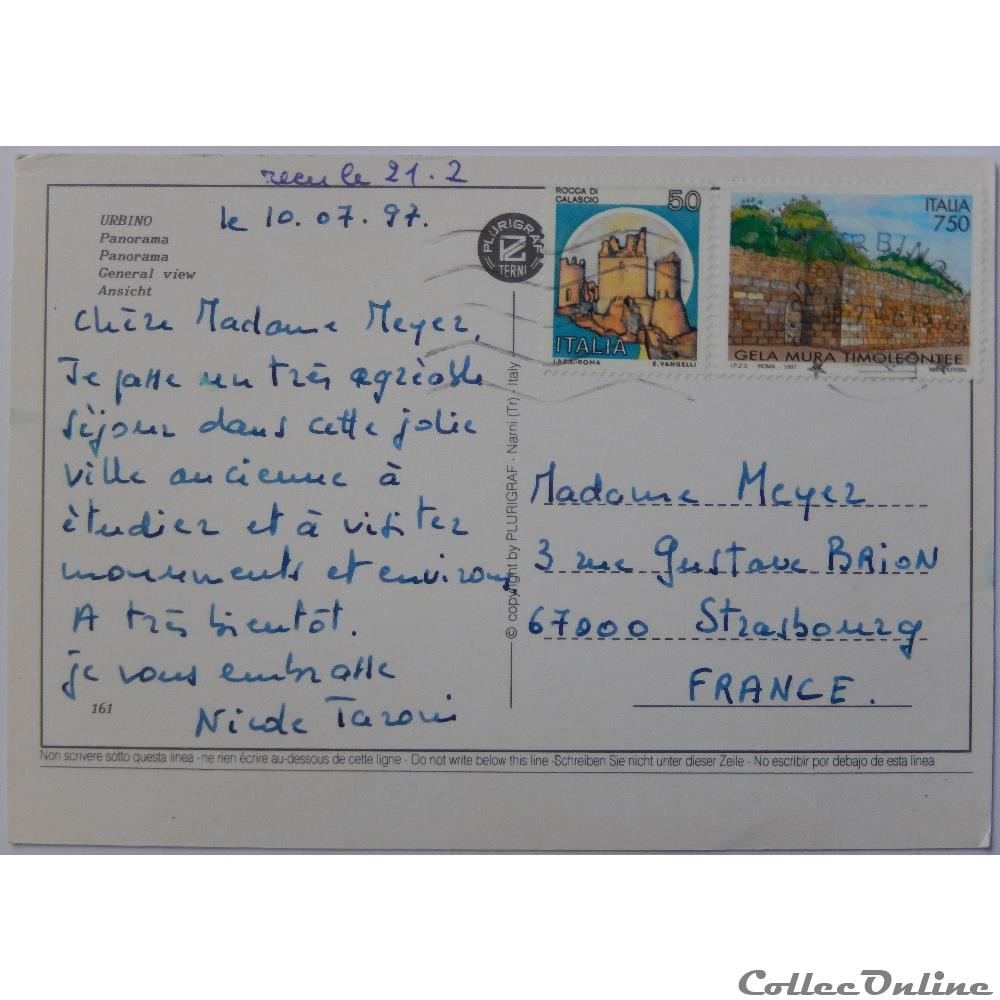 reçu le 21.2
le 10.07.97.
URBINO
Panorama
Panorama
General view
Ansicht
Chère Madame Meyer,
Je passe un très agréable
séjour dans cette jolie
ville ancienne à
étudier et à visiter
monuments et environs
A très bientôt.
je vous embrasse
Nicole
161
PLURIGRAF
TERNI
© copyright by PLURIGRAF - Narni (Tr) - Italy
ROCCA DI
CALASCIO
50
ITALIA
I.P.Z.S.-ROMA
E. VANGELLI
ITALIA
750
URBINO
GELA MURA TIMOLEONTEE
I.P.Z.S. - ROMA - 1997
Madame Meyer
3 rue Gustave BRION
67000 Strasbourg
FRANCE.
Non scrivere sotto questa linea - ne rien écrire au-dessous de cette ligne - Do not write below this line -Schreiben Sie nicht unter dieser Zeile - No escribir por debajo de esta linea
CollecOnline